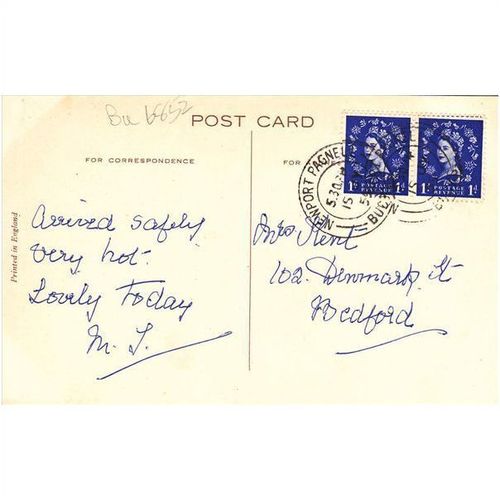 Bu 6652
POST CARD
FOR CORRESPONDENCE
FOR
NEWPORT PAGNELL
BUCKS
5.30
15
1D POSTAGE REVENUE 1D
1D POSTAGE REVENUE 1D
Printed in England
Arrived safely
Very hot.
Lovely Today
M. J.
Mrs Kent
102 Denmark St
Bedford